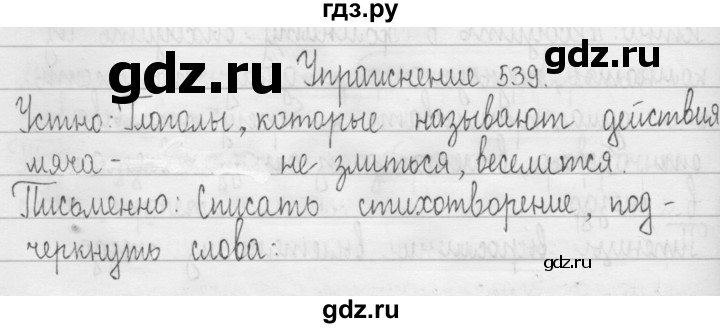 гдз.ру
gdz.ru gdz.ru
Упражнение 539.
Устно: Глаголы, которые называют действия
мяча - не злиться, веселится.
Письменно: Списать стихотворение, под-
черкнуть слова:
gdz.ru gdz.ru
gdz.ru